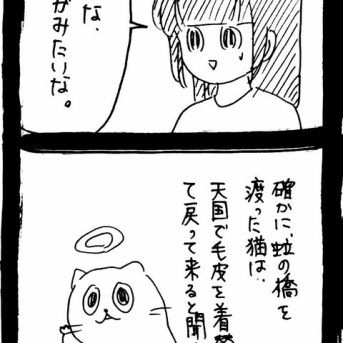 な、
がみたいな。
確かに、虹の橋を
渡った猫は、
天国で毛皮を着替
て戻って来ると聞